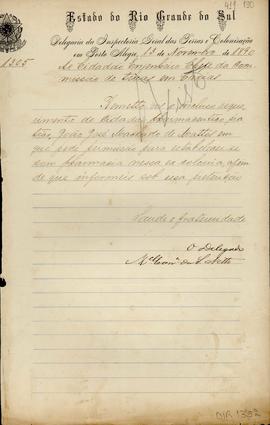 419 130
Estado do Rio Grande do Sul
Delegacia da Inspectoria Geral das Terras e Colonização
em Porto Alegre, 13 de Novembro de 1890
Nº 1205
Ao Cidadão Engenheiro Chefe da Com
missão de Terras em Caxias
Remetto vos o incluso reque
rimento do cidadão pharmaceutico pra
tico, João José Machado de Mattos em
que pede permissão para estabelecer-se
com pharmacia nessa ex colonia, afim
de que informeis sob essa pretenção
Saude e fraternidade
O Delegado
Mel
Netto
DIR 1392